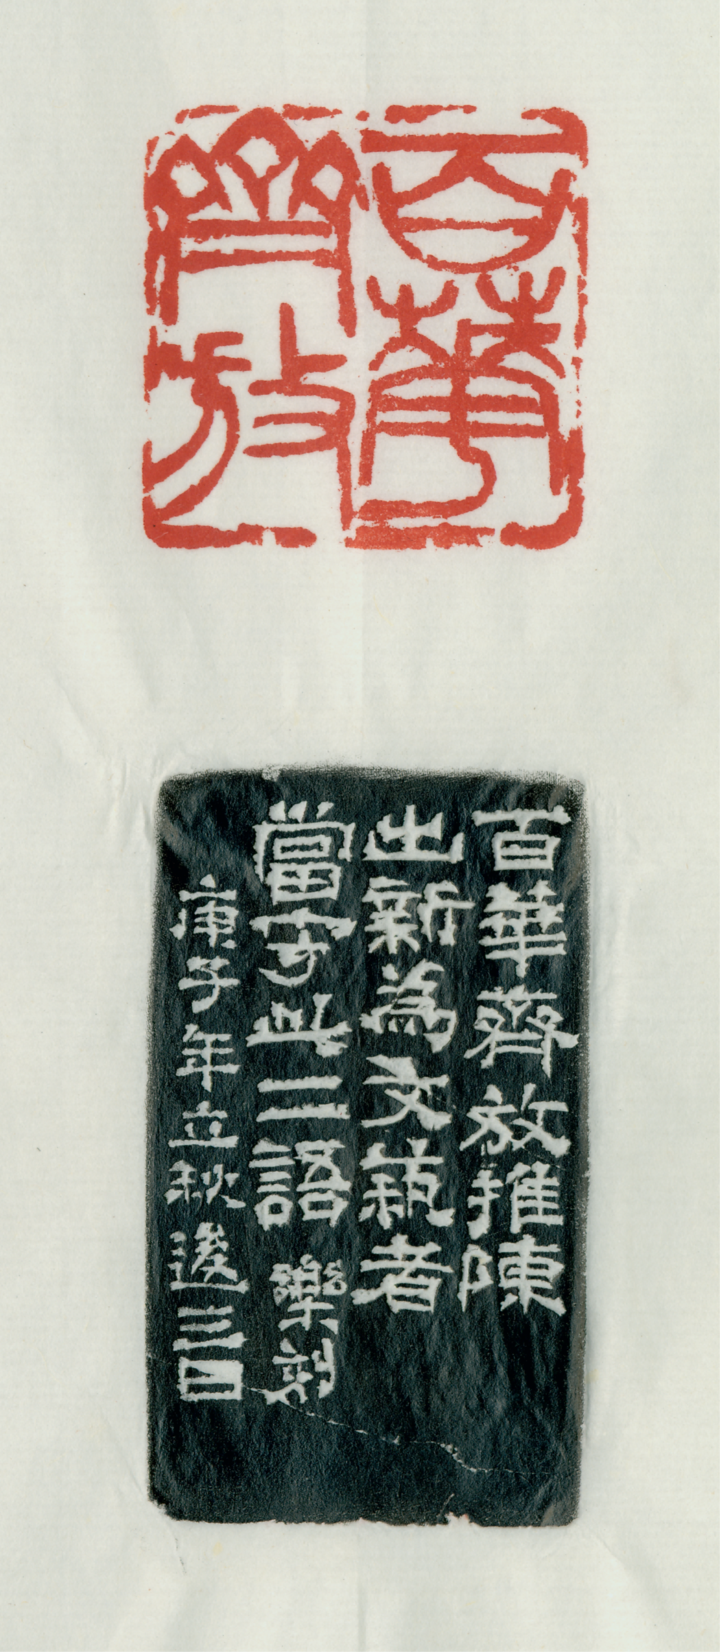 百華
齊放
百華齊放推陳
出新為文蓺者
當守此二語 樂刻
庚子年立秋後三日